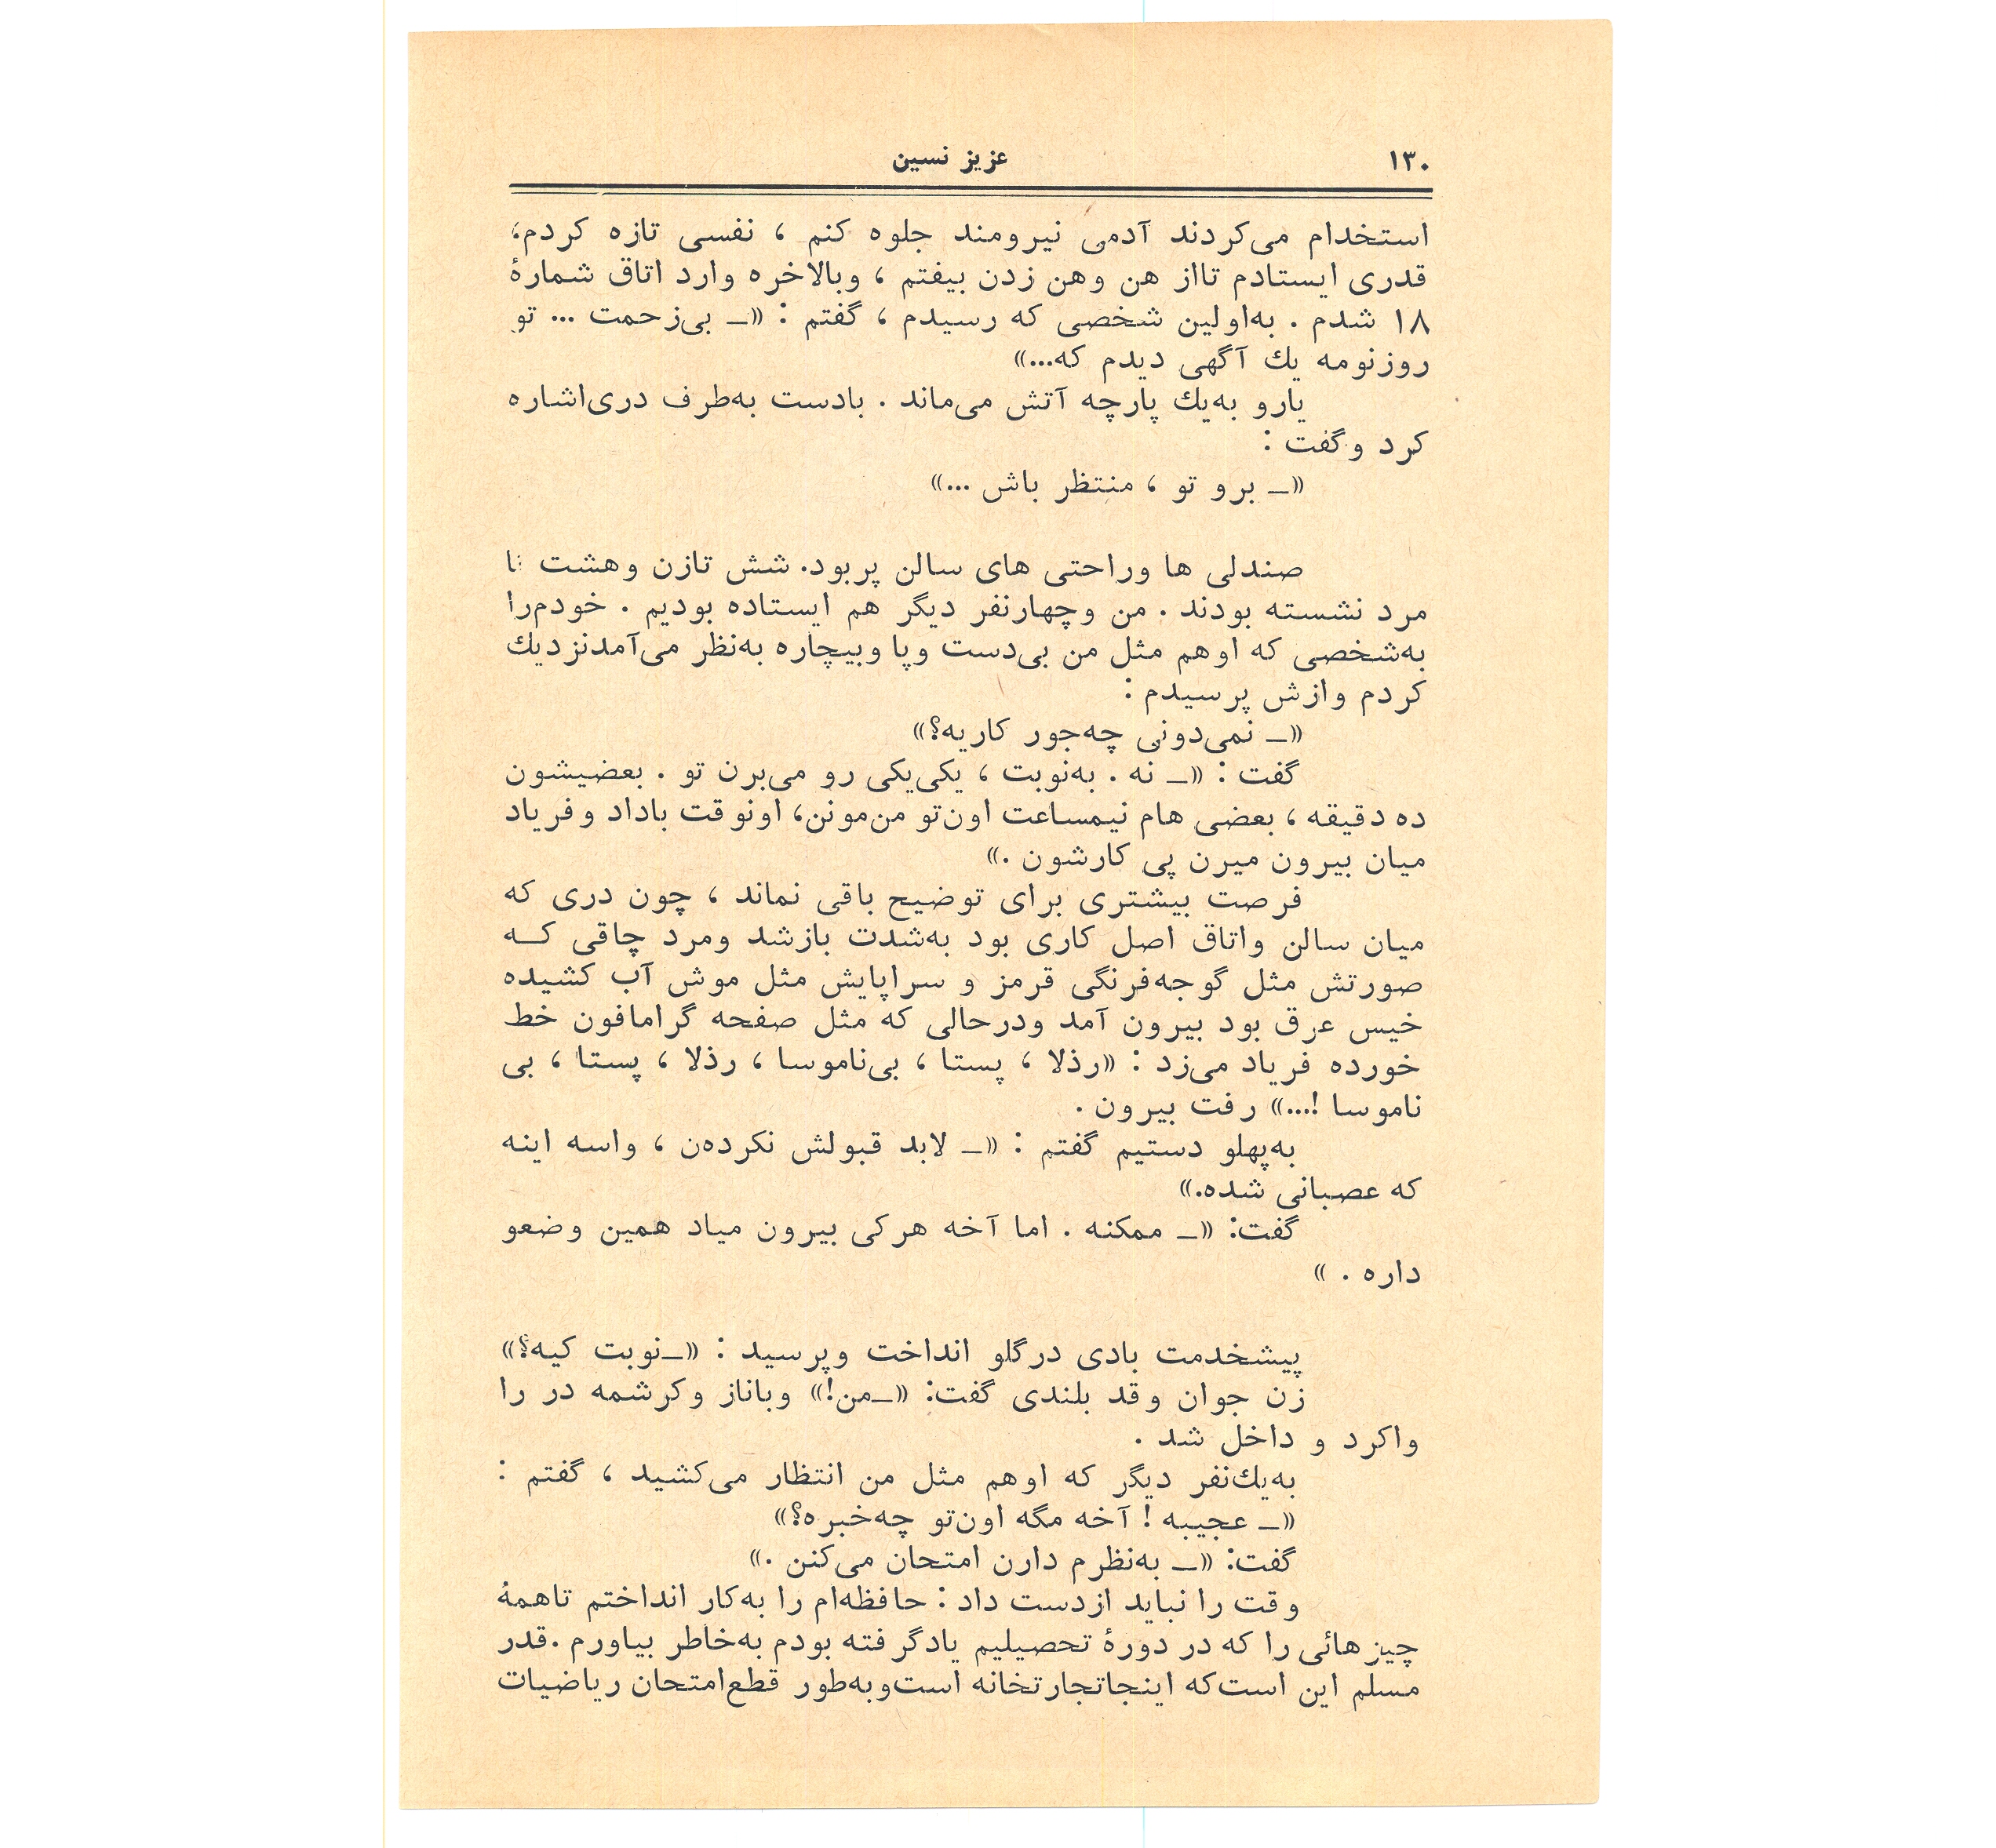 ۱۳۰
عزیز نسین
استخدام می‌کردند آدمی نیرومند جلوه کنم ، نفسی تازه کردم،
قدری ایستادم تااز هن وهن زدن بیفتم ، وبالاخره وارد اتاق شمارهٔ
۱۸ شدم . به‌اولین شخصی که رسیدم ، گفتم : «ـ بی‌زحمت ... تو
روزنومه یك آگهی دیدم که...»
یارو به‌یك پارچه آتش می‌ماند . بادست به‌طرف دری‌اشاره
کرد وگفت :
«ـ برو تو ، منتظر باش ...»
صندلی ها وراحتی های سالن پربود. شش تازن وهشت تا
مرد نشسته بودند . من وچهارنفر دیگر هم ایستاده بودیم . خودم‌را
به‌شخصی که اوهم مثل من بی‌دست وپا وبیچاره به‌نظر می‌آمدنزدیك
کردم وازش پرسیدم :
«ـ نمی‌دونی چه‌جور کاریه؟»
گفت : «ـ نه . به‌نوبت ، یکی‌یکی رو می‌برن تو . بعضیشون
ده دقیقه ، بعضی هام نیمساعت اون‌تو من‌مونن، اونوقت باداد وفریاد
میان بیرون میرن پی کارشون .»
فرصت بیشتری برای توضیح باقی نماند ، چون دری که
میان سالن واتاق اصل کاری بود به‌شدت بازشد ومرد چاقی کـه
صورتش مثل گوجه‌فرنگی قرمز و سراپایش مثل موش آب کشیده
خیس عرق بود بیرون آمد ودرحالی که مثل صفحه گرامافون خط
خورده فریاد می‌زد : «رذلا ، پستا ، بی‌ناموسا ، رذلا ، پستا ، بی
ناموسا !...» رفت بیرون .
به‌پهلو دستیم گفتم : «ـ لابد قبولش نکرده‌ن ، واسه اینه
که عصبانی شده.»
گفت: «ـ ممکنه . اما آخه هرکی بیرون میاد همین وضعو
داره . »
پیشخدمت بادی درگلو انداخت وپرسید : «ـنوبت کیه؟»
زن جوان وقد بلندی گفت: «ـمن!» وباناز وکرشمه در را
واکرد و داخل شد .
به‌یك‌نفر دیگر که اوهم مثل من انتظار می‌کشید ، گفتم :
«ـ عجیبه ! آخه مگه اون‌تو چه‌خبره؟»
گفت: «ـ به‌نظرم دارن امتحان می‌کنن .»
وقت را نباید ازدست داد : حافظه‌ام را به‌کار انداختم تاهمهٔ
چیزهائی را که در دورهٔ تحصیلیم یادگرفته بودم به‌خاطر بیاورم .قدر
مسلم این است‌که اینجاتجارتخانه است‌وبه‌طور قطع‌امتحان ریاضیات